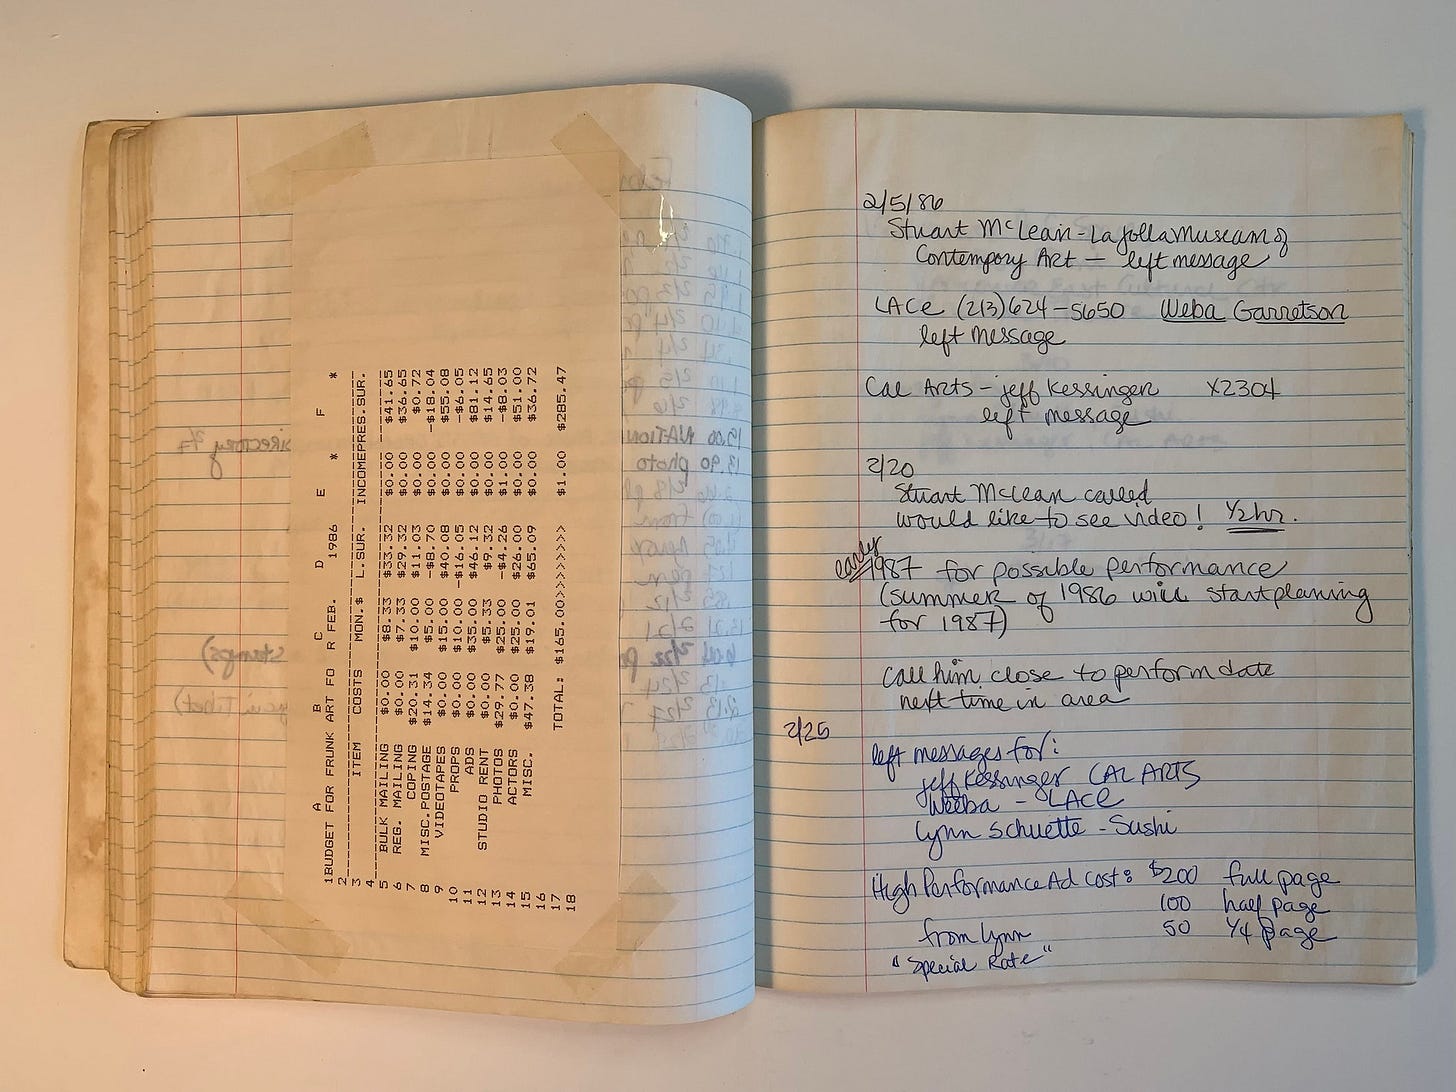 A B C D E F
1BUDGET FOR FRUNK ART FO R FEB. 1986 * *
2------------------------------------------------------------
3 ITEM COSTS MON.$ L.SUR. INCOMEPRES.SUR.
4------------------------------------------------------------
5 BULK MAILING $0.00 $8.33 $33.32 $0.00 $41.65
6 REG. MAILING $0.00 $7.33 $29.32 $0.00 $36.65
7 COPING $20.31 $10.00 $11.03 $0.00 $0.72
8 MISC.POSTAGE $14.34 $5.00 -$8.70 $0.00 -$18.04
9 VIDEOTAPES $0.00 $15.00 $40.08 $0.00 $55.08
10 PROPS $0.00 $10.00 -$16.05 $0.00 -$6.05
11 ADS $0.00 $35.00 $46.12 $0.00 $81.12
12 STUDIO RENT $0.00 $5.33 $9.32 $0.00 $14.65
13 PHOTOS $29.77 $25.00 -$4.26 $1.00 -$8.03
14 ACTORS $0.00 $25.00 $26.00 $0.00 $51.00
15 MISC. $47.38 $19.01 $65.09 $0.00 $36.72
16
17 TOTAL: $165.00>>>>>>>>> $1.00 $285.47
18
2/5/86
Stuart McLean - La Jolla Museum of
Contempory Art — left message
LACE (213) 624-5650 Weba Garretson
left message
Cal Arts - Jeff Kessinger X2304
left message
2/20
Stuart McLean called
would like to see video! 1/2 hr.
early 1987 for possible performance
(summer of 1986 will start planing
for 1987)
call him close to perform date
next time in area
2/25
left messages for:
Jeff Kessinger CAL ARTS
Weeba - LACE
Lynn Schuette - Sushi
High Performance Ad cost: $200 full page
100 half page
from Lynn 50 1/4 page
"Special Rate"